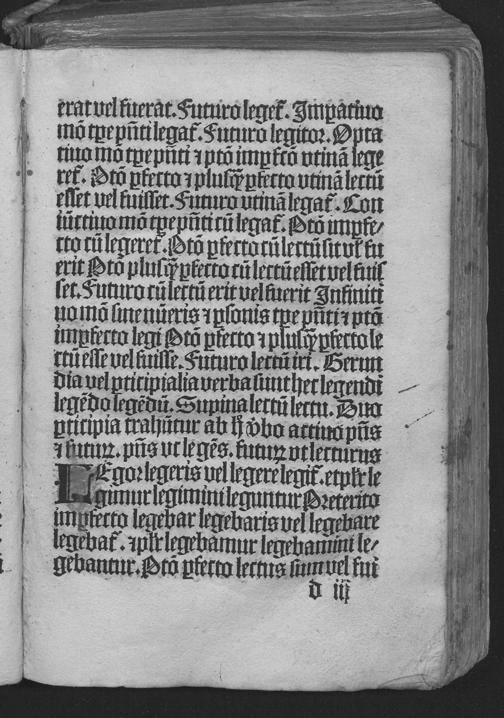 erat vel fuerat. Futuro leget̄. Imꝑatiuo
mō tꝑe pn̄ti legat̄. Futuro legitor. Opta
tiuo mō tꝑe pn̄ti ⁊ p̄tō imꝑfcō vtinā lege
ret̄. P̄tō ꝑfecto ⁊ plusq̄ꝑfecto vtinā lectū
esset vel fuisset. Futuro vtinā legat̄. Con
iūctiuo mō tꝑe pn̄ti cū legat̄. P̄tō imꝑfe/
cto cū legeret̄. P̄tō ꝑfecto cū lectū sit vl̓ fu
erit P̄tō plusq̄ꝑfecto cū lectū esset vel fuis
set. Futuro cū lectū erit vel fuerit Infiniti
uo mō sine nūeris ⁊ ꝑsonis tꝑe pn̄ti ⁊ p̄tō
imꝑfecto legi P̄tō ꝑfecto ⁊ plusq̄ꝑfecto le
ctū esse vel fuisse. Futuro lectū iri. Gerun
dia vel ꝑticipialia verba sunt hec legendi
legēdo legēdū. Supina lectū lectu. Duo
ꝑticipia trahūtur ab h̓ v̓bo actiuo pn̄s
⁊ futuꝝ. pn̄s vt legēs. futuꝝ vt lecturus
LEgor legeris vel legere legit̄. et pl̓r le
gimur legimini leguntur Preterito
imꝑfecto legebar legebaris vel legebare
legebat̄. ⁊ pl̓r legebamur legebamini le/
gebantur. P̄tō ꝑfecto lectus sum vel fui
d iij